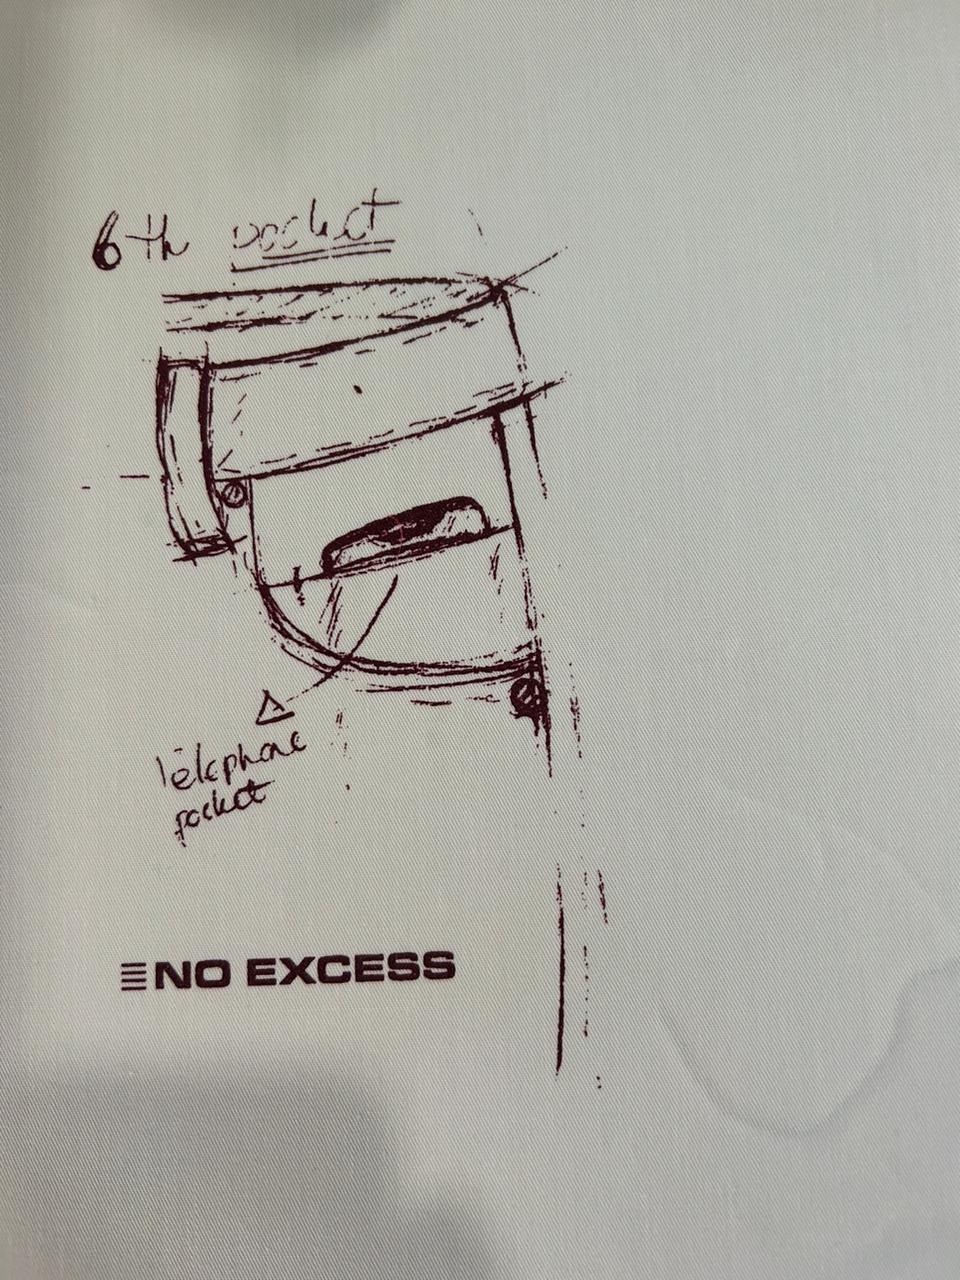 6th pocket
Télephone
pocket
NO EXCESS